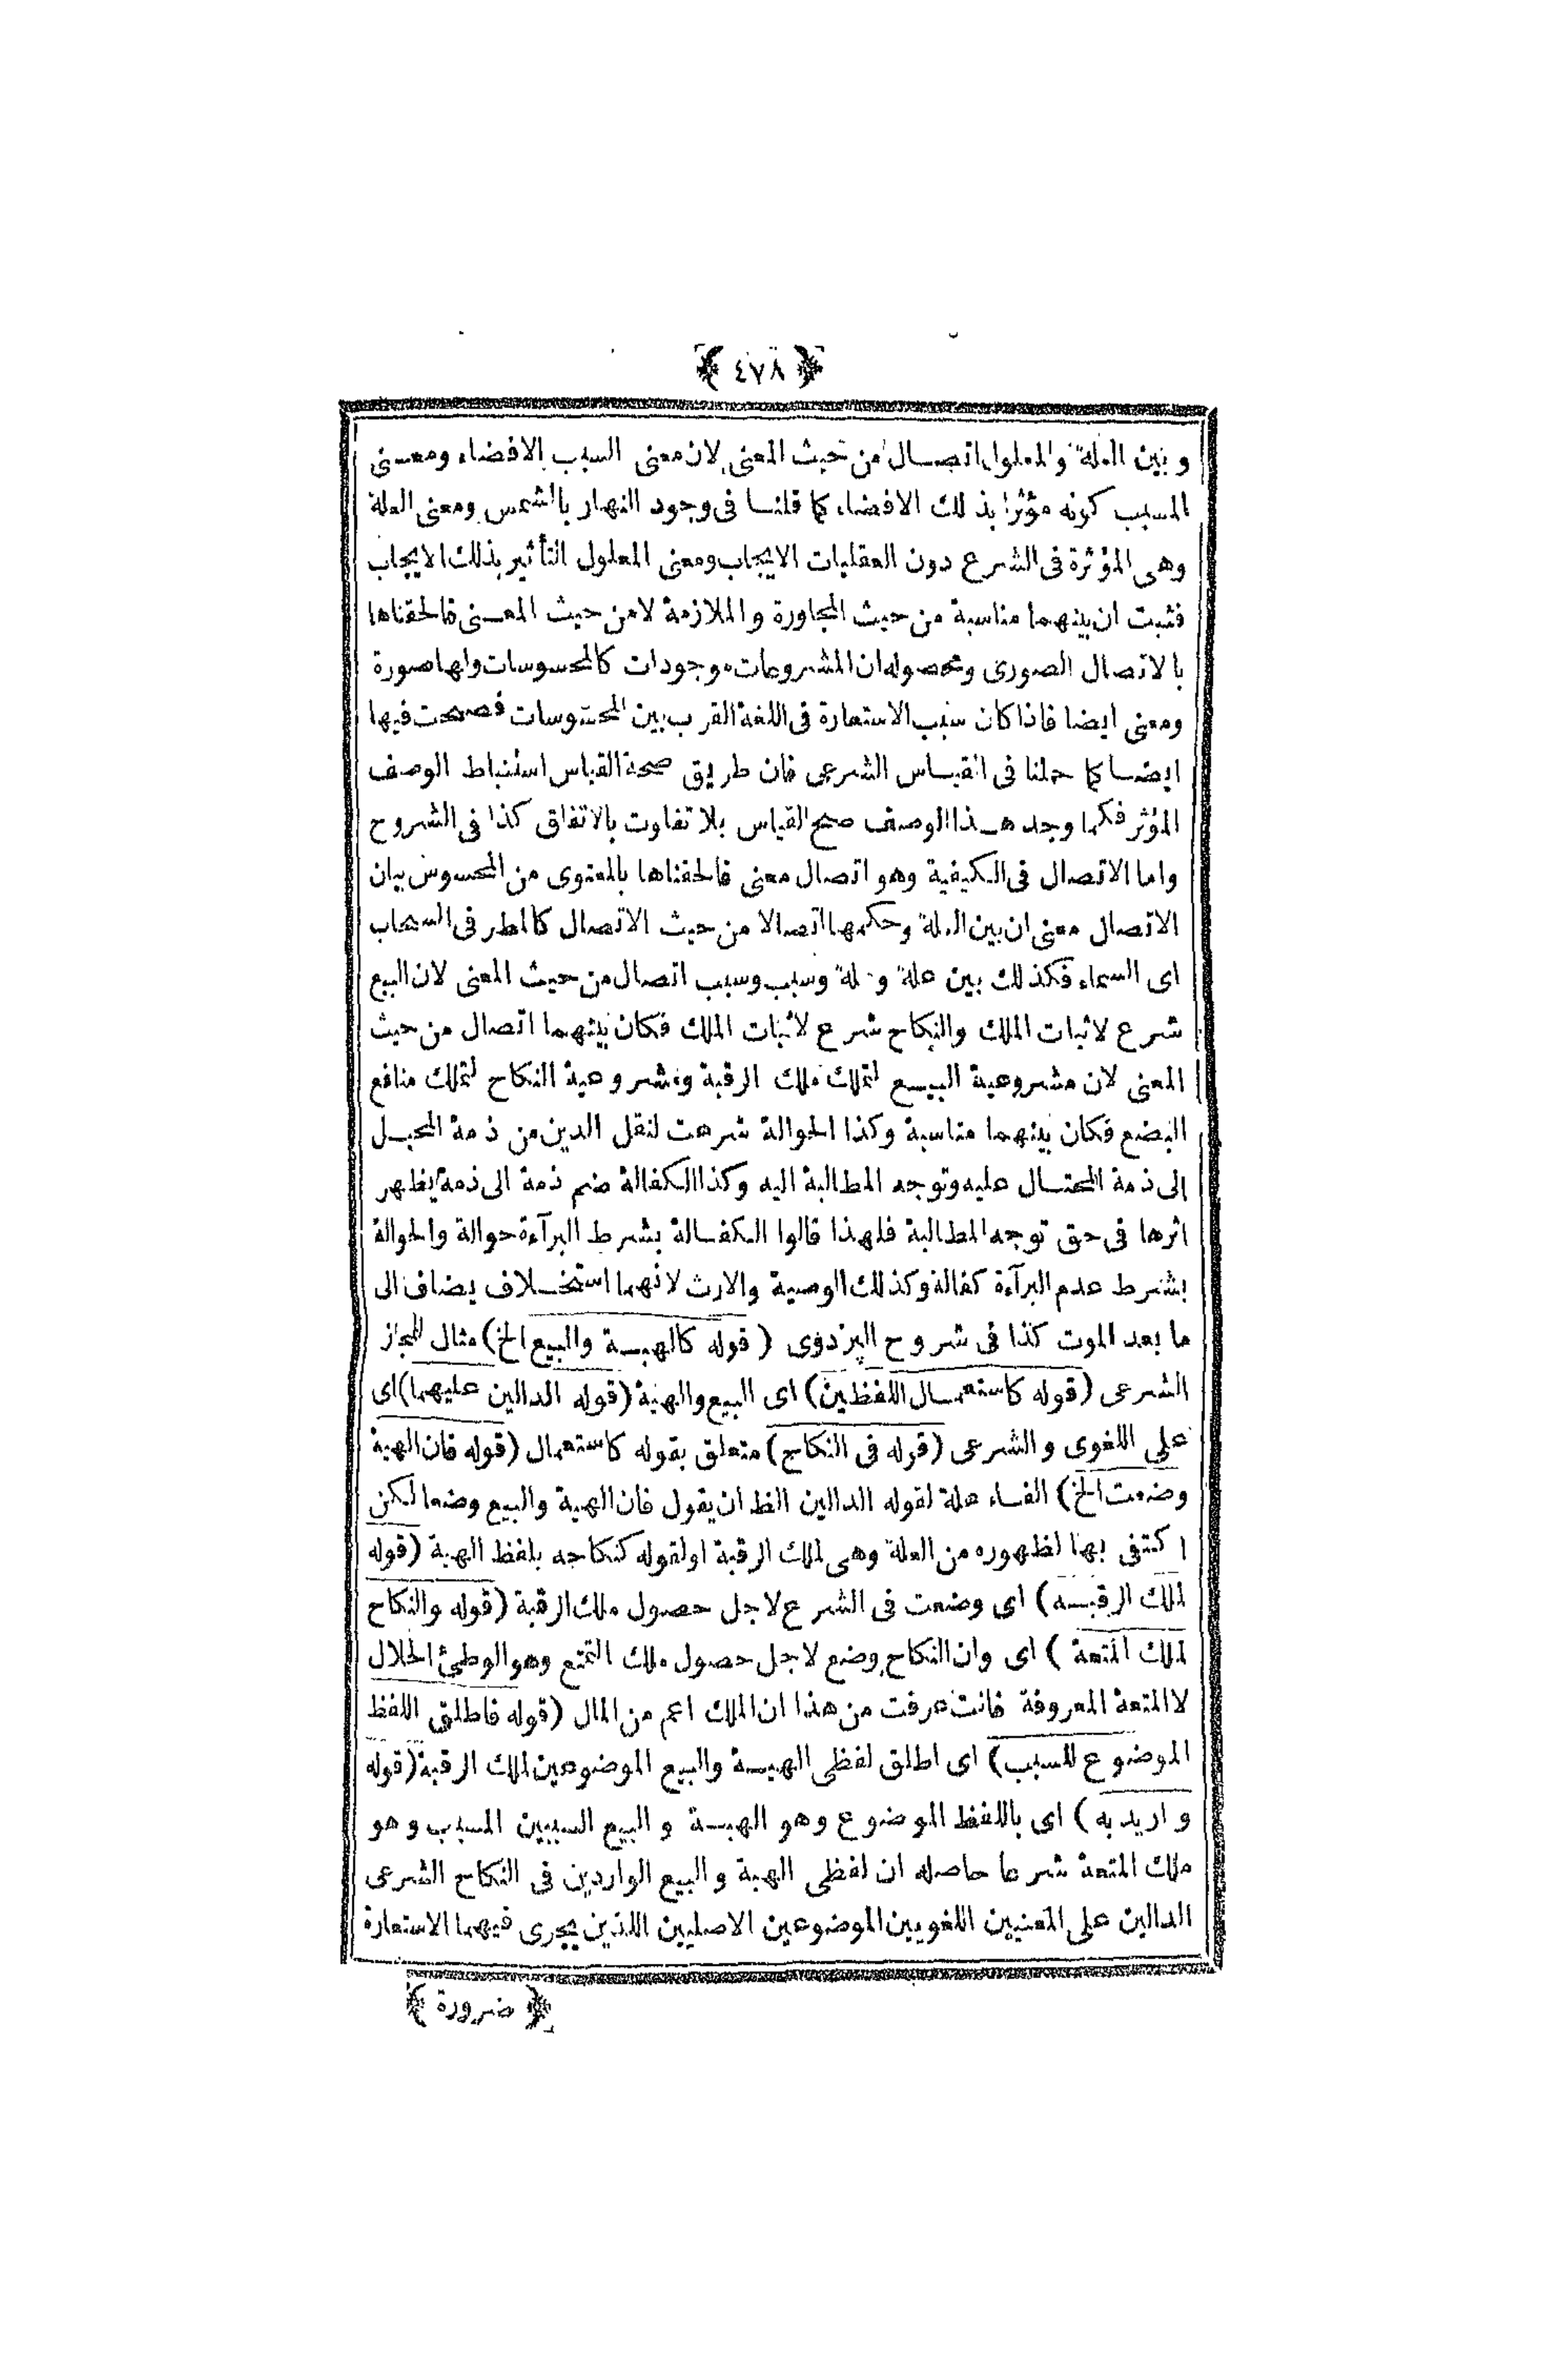 ﴿ ٤٧٨ ﴾
و بين العلة والمعلول اتصال من حيث المعنى لان معنى السبب الافضاء ومعنى
المسبب كونه مؤثرا بذلك الافضاء كما قلنا فى وجود النهار بالشمس ومعنى العلة
وهى المؤثرة فى الشرع دون العقليات الايجاب ومعنى المعلول التأثير بذلك الايجاب
فثبت ان بينهما مناسبة من حيث المجاورة والملازمة لا من حيث المعنى فالحقناها
بالاتصال الصورى ومحصوله ان المشروعات موجودات كالمحسوسات ولها صورة
ومعنى ايضا فاذا كان سبب الاستعارة فى اللغة القرب بين المحسوسات فصحت فيها
ايضا كما حملنا فى القياس الشرعى فان طريق صحة القياس استنباط الوصف
المؤثر فكما وجد هذا الوصف صح القياس بلا تفاوت بالاتفاق كذا فى الشروح
واما الاتصال فى الكيفية وهو اتصال معنى فالحقناها بالمعنوى من المحسوس بيان
الاتصال معنى ان بين العلة وحكمها اتصالا من حيث الاتصال كالمطر فى السحاب
اى السماء فكذلك بين علة وعلة وسبب وسبب اتصال من حيث المعنى لان البيع
شرع لاثبات الملك والنكاح شرع لاثبات الملك فكان بينهما اتصال من حيث
المعنى لان مشروعية البيع لتملك ملك الرقبة ومشروعية النكاح لتملك منافع
البضع فكان بينهما مناسبة وكذا الحوالة شرعت لنقل الدين من ذمة المحيل
الى ذمة المحتال عليه وتوجه المطالبة اليه وكذا الكفالة ضم ذمة الى ذمة يظهر
اثرها فى حق توجه المطالبة فلهذا قالوا الكفالة بشرط البرآءة حوالة والحوالة
بشرط عدم البرآءة كفالة وكذلك الوصية والارث لانهما استخلاف يضاف الى
ما بعد الموت كذا فى شروح البزدوى ( قوله كالهبة والبيع الخ) مثال للمجاز
الشرعى (قوله كاستعمال اللفظين) اى البيع والهبة (قوله الدالين عليهما) اى
على اللغوى والشرعى (قوله فى النكاح) متعلق بقوله كاستعمال (قوله فان الهبة
وضعت الخ) الفاء علة لقوله الدالين الظ ان يقول فان الهبة والبيع وضعا لكن
اكتفى بها لظهوره من العلة وهى لملك الرقبة او لقوله كنكاحه بلفظ الهبة (قوله
لملك الرقبه) اى وضعت فى الشرع لاجل حصول ملك الرقبة (قوله والنكاح
لملك المتعة ) اى وان النكاح وضع لاجل حصول ملك التمتع وهو الوطئ الحلال
لا المتعة المعروفة فانت عرفت من هذا ان الملك اعم من المال (قوله فاطلق اللفظ
الموضوع للسبب) اى اطلق لفظى الهبة والبيع الموضوعين لملك الرقبة (قوله
و اريد به ) اى باللفظ الموضوع وهو الهبة و البيع السببين المسبب و هو
ملك المتعة شرعا حاصله ان لفظى الهبة و البيع الواردين فى النكاح الشرعى
الدالين على المعنيين اللغويين الموضوعين الاصليين اللذين يجرى فيهما الاستعارة
﴿ ضرورة ﴾